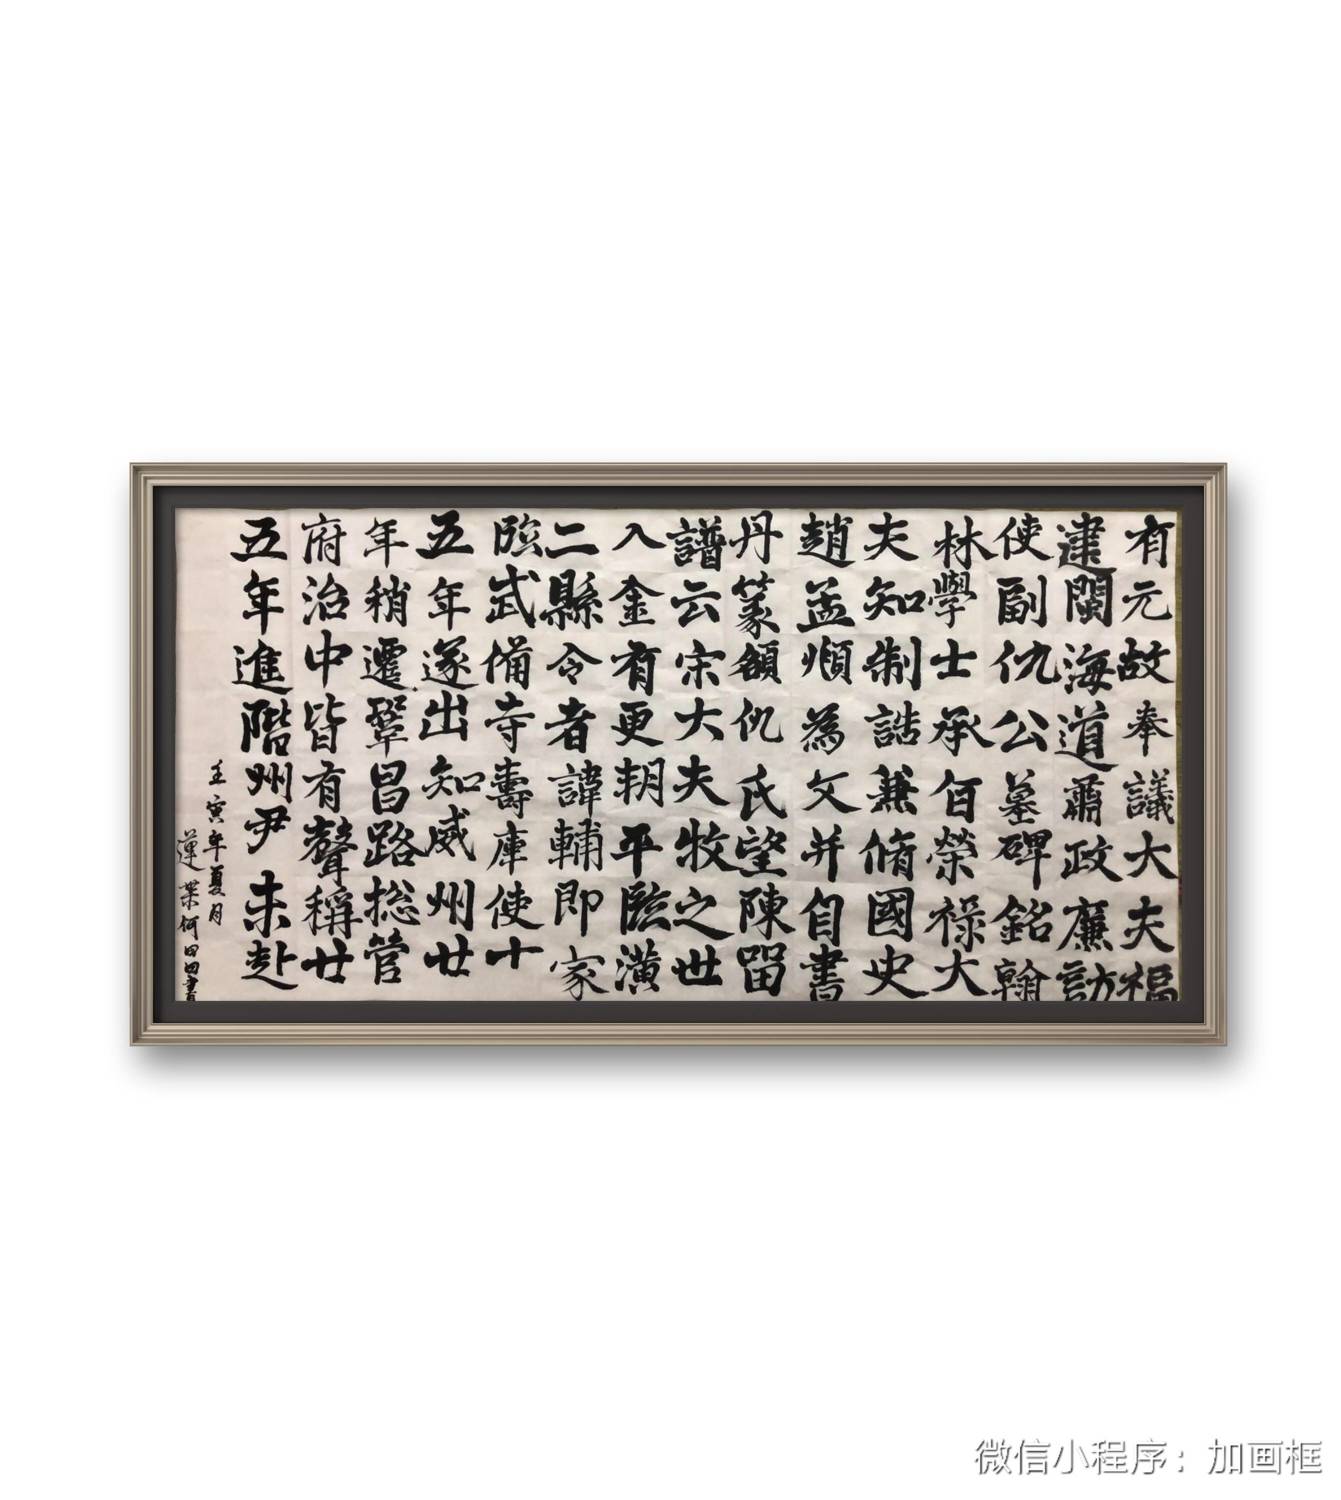 有元故奉議大夫福
建閩海道肅政廉訪
使副仇公墓碑銘翰
林學士承旨榮祿大
夫知制誥兼脩國史
趙孟頫為文并自書
丹篆額仇氏望陳留
譜云宋大夫牧之世
入金有更朝平臨潢
二縣令者諱輔即家
臨武備寺壽庫使十
五年遂出知威州廿
年稍遷鞏昌路総管
府治中皆有聲稱廿
五年進階州尹未赴
壬寅年夏月
蓮葉何田田書
微信小程序：加画框